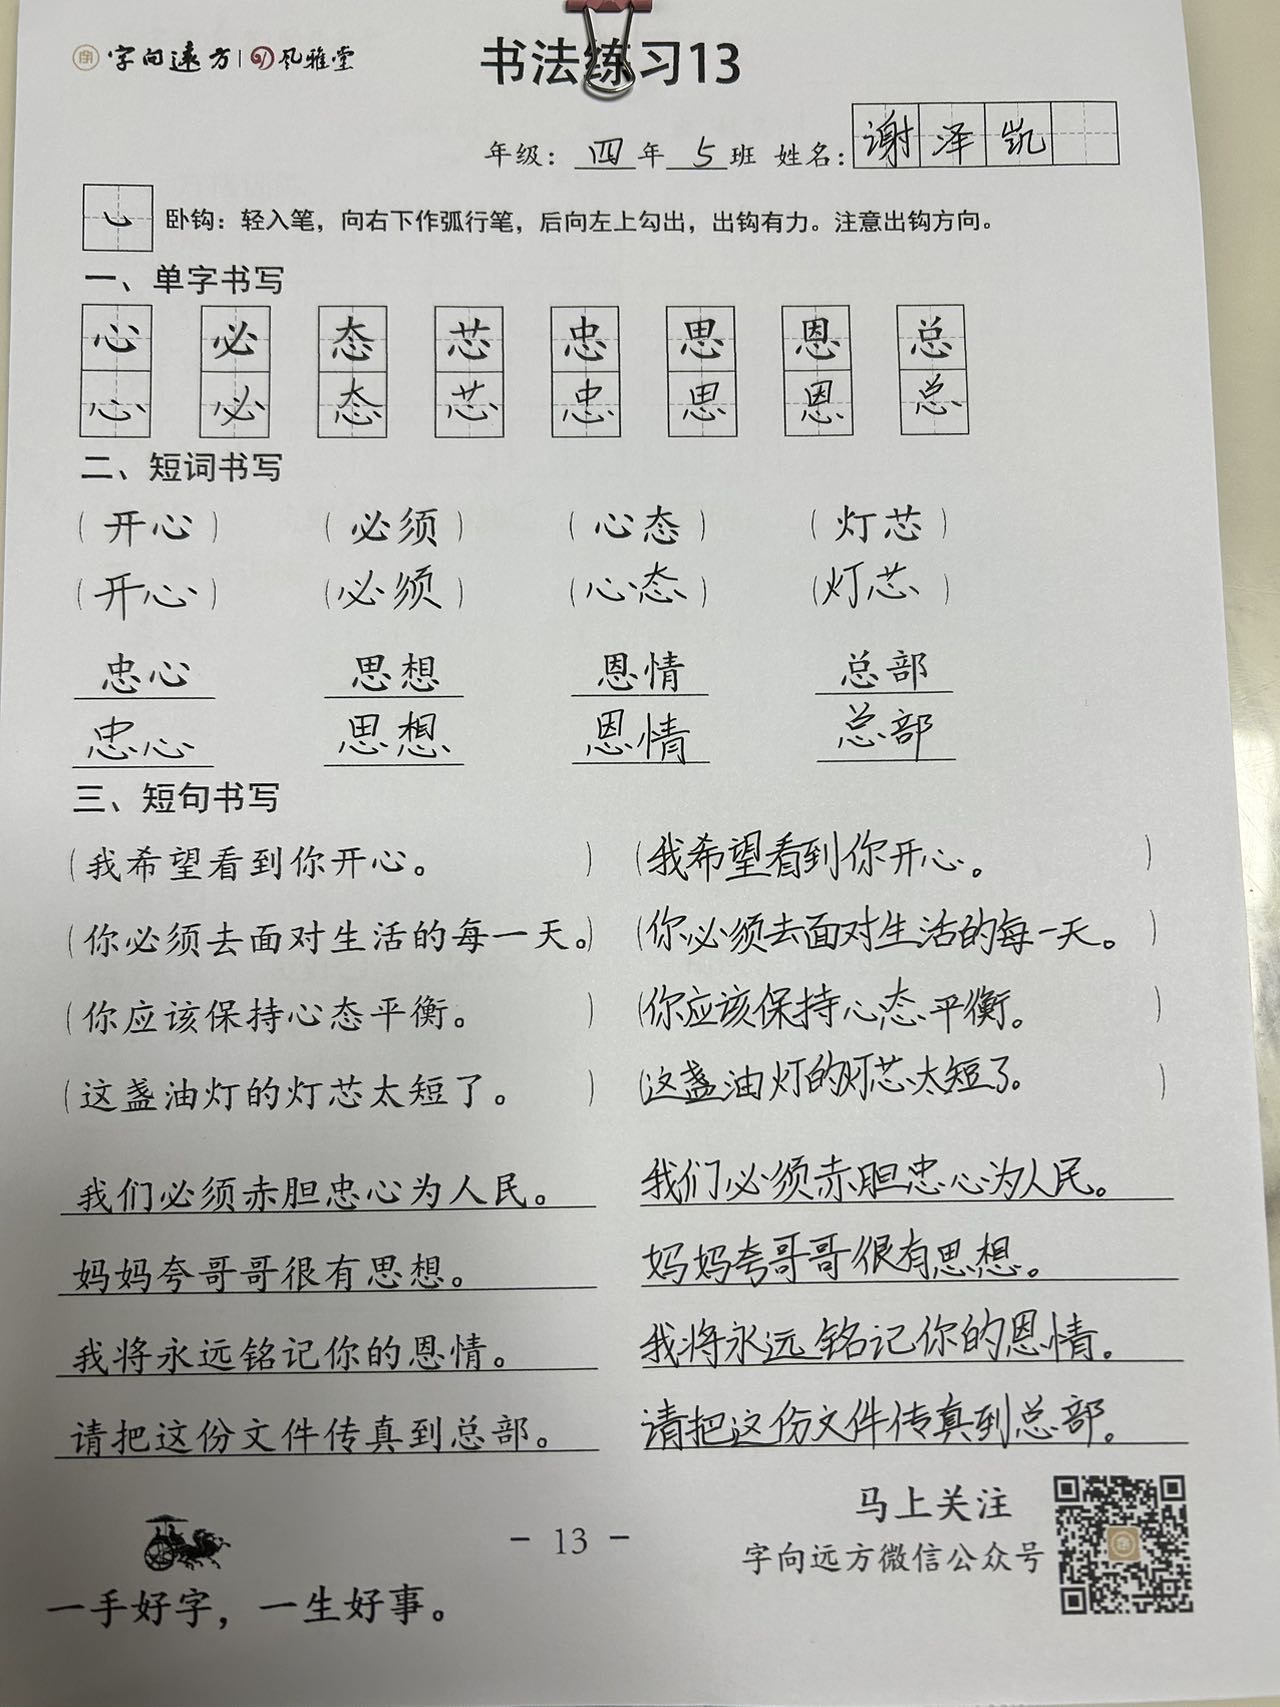 字向远方 风雅堂
书法练习13
年级：四年5班 姓名：谢泽凯
卧钩：轻入笔，向右下作弧行笔，后向左上勾出，出钩有力。注意出钩方向。
一、单字书写
心 必 态 芯 忠 思 恩 总
心 必 态 芯 忠 思 恩 总
二、短词书写
（开心） （必须） （心态） （灯芯）
（开心） （必须） （心态） （灯芯）
忠心 思想 恩情 总部
忠心 思想 恩情 总部
三、短句书写
（我希望看到你开心。） （我希望看到你开心。）
（你必须去面对生活的每一天。） （你必须去面对生活的每一天。）
（你应该保持心态平衡。） （你应该保持心态平衡。）
（这盏油灯的灯芯太短了。） （这盏油灯的灯芯太短了。）
我们必须赤胆忠心为人民。 我们必须赤胆忠心为人民。
妈妈夸哥哥很有思想。 妈妈夸哥哥很有思想。
我将永远铭记你的恩情。 我将永远铭记你的恩情。
请把这份文件传真到总部。 请把这份文件传真到总部。
马上关注
- 13 -
字向远方微信公众号
一手好字，一生好事。